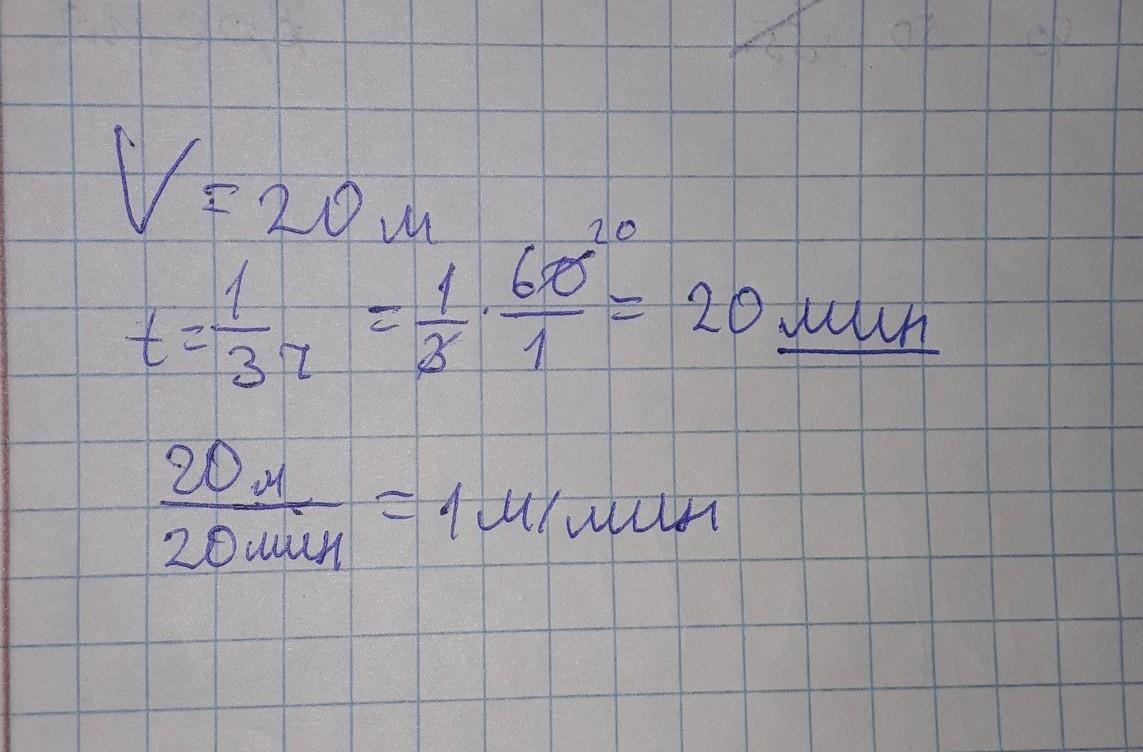 V = 20 м
t = 1/3 ч = 1/3 · 60/1 20 = 20 мин
20 м / 20 мин = 1 м/мин